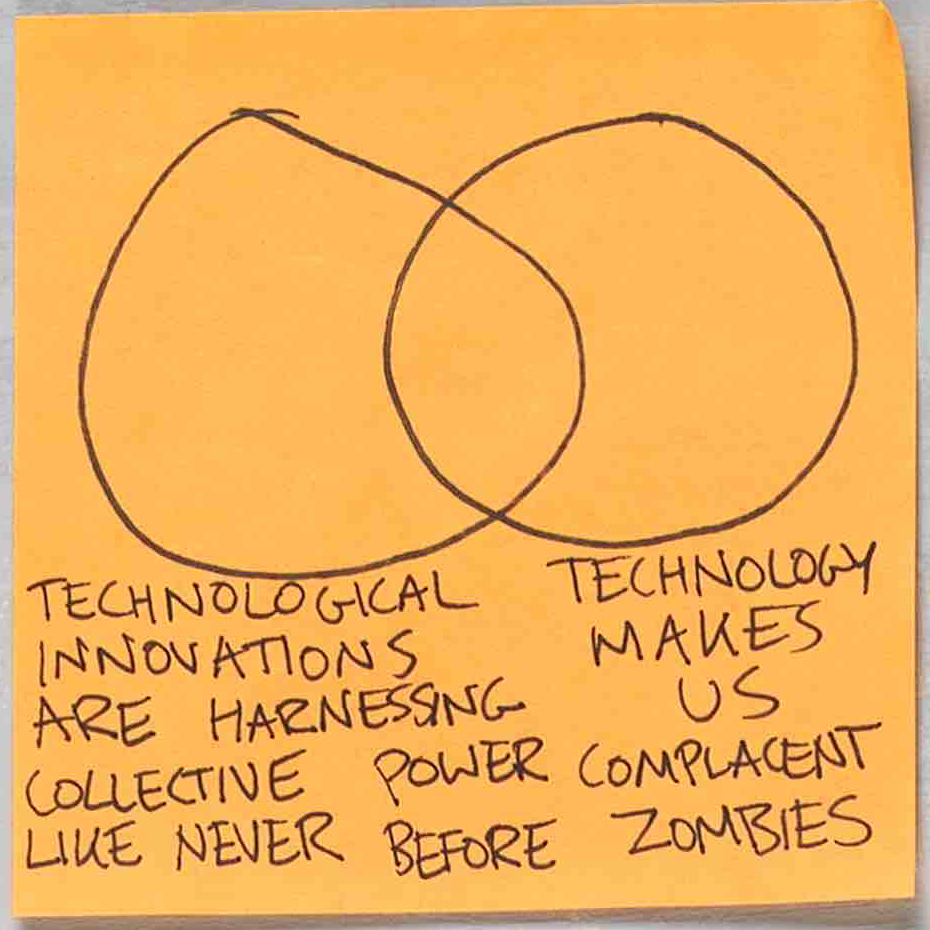 TECHNOLOGICAL
INNOVATIONS
ARE HARNESSING
COLLECTIVE POWER
LIKE NEVER BEFORE
TECHNOLOGY
MAKES
US
COMPLACENT
ZOMBIES